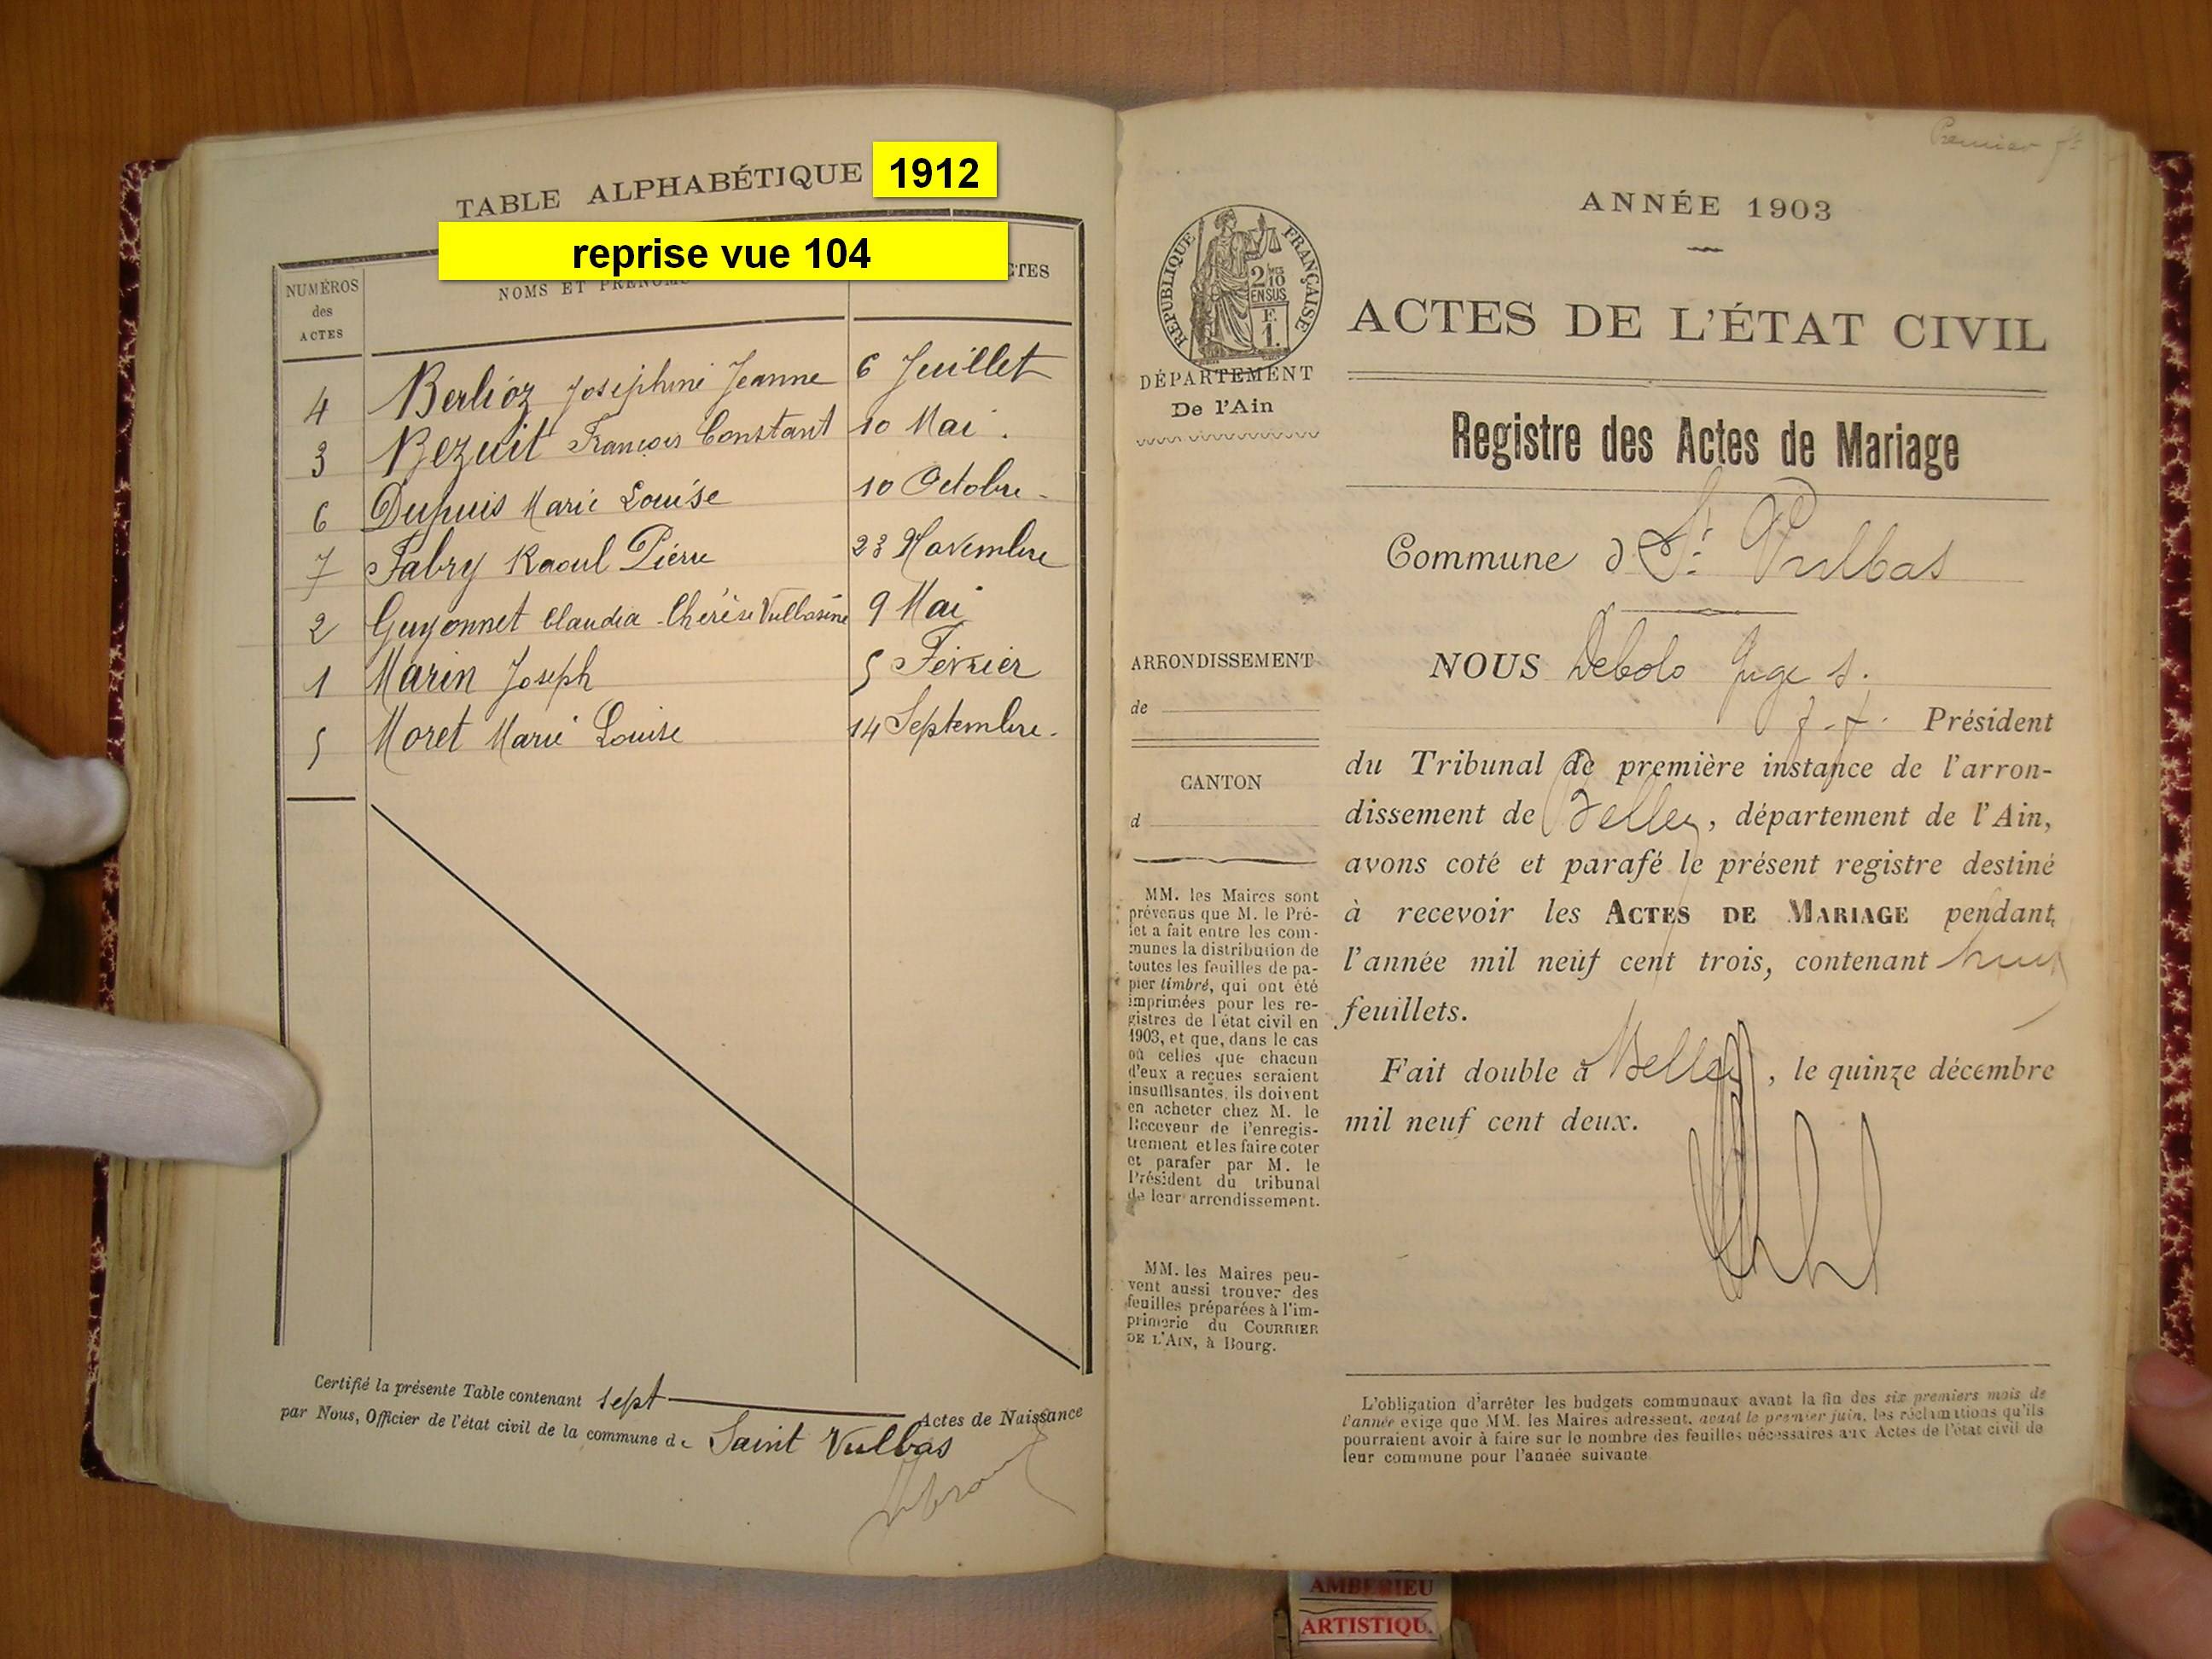 TABLE ALPHABÉTIQUE 1912
reprise vue 104
NUMÉROS
des
ACTES
NOMS ET PRÉNOMS
CTES
4 Berlioz Joséphine Jeanne 6 Juillet
3 Bezuit François Constant 10 Mai.
6 Dupuis Marie Louise 10 Octobre
7 Fabry Raoul Pierre 23 Novembre
2 Guyonnet Claudia Thérèse Vulbasine 9 Mai
1 Marin Joseph 5 Février
5 Moret Marie Louise 14 Septembre.
Certifié la présente Table contenant sept Actes de Naissance
par Nous, Officier de l'état civil de la commune de Saint Vulbas
Premier
RÉPUBLIQUE FRANÇAISE
2/10
EN SUS
F.
1.
DÉPARTEMENT
De l'Ain
ARRONDISSEMENT
de
CANTON
d
MM. les Maires sont
prévenus que M. le Pré-
fet a fait entre les com-
munes la distribution de
toutes les feuilles de pa-
pier timbré, qui ont été
imprimées pour les re-
gistres de l'état civil en
1903, et que, dans le cas
où celles que chacun
d'eux a reçues seraient
insuffisantes, ils doivent
en acheter chez M. le
Receveur de l'enregis-
trement et les faire coter
et parafer par M. le
Président du tribunal
de leur arrondissement.
MM. les Maires peu-
vent aussi trouver des
feuilles préparées à l'im-
primerie du COURRIER
DE L'AIN, à Bourg.
ANNÉE 1903
ACTES DE L'ÉTAT CIVIL
Registre des Actes de Mariage
Commune d St Vulbas
NOUS Debolo Juge s.
f. f. Président
du Tribunal de première instance de l'arron-
dissement de Belley, département de l'Ain,
avons coté et parafé le présent registre destiné
à recevoir les ACTES DE MARIAGE pendant
l'année mil neuf cent trois, contenant huit
feuillets.
Fait double à Belley, le quinze décembre
mil neuf cent deux.
L'obligation d'arrêter les budgets communaux avant la fin des six premiers mois de
l'année exige que MM. les Maires adressent, avant le premier juin, les réclamations qu'ils
pourraient avoir à faire sur le nombre des feuilles nécessaires aux Actes de l'état civil de
leur commune pour l'année suivante
AMBERIEU
ARTISTIQU